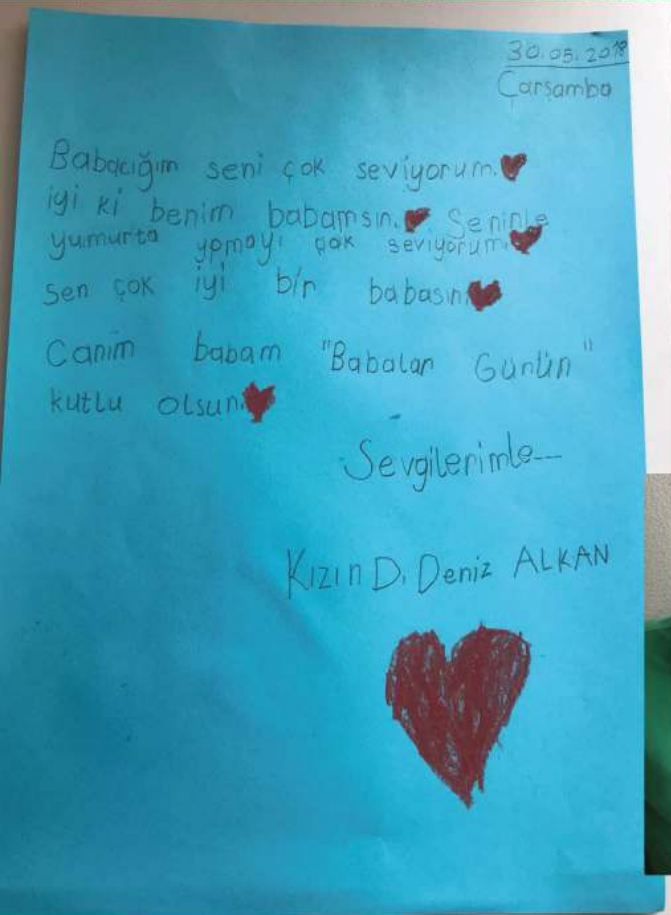 30.05.2018
Çarşamba
Babacığım seni çok seviyorum.
iyi ki benim babamsın. Seninle
yumurta yapmayı çok seviyorum.
Sen çok iyi bir babasın.
Canım babam "Babalar Günün"
kutlu olsun.
Sevgilerimle...
Kızın D. Deniz ALKAN